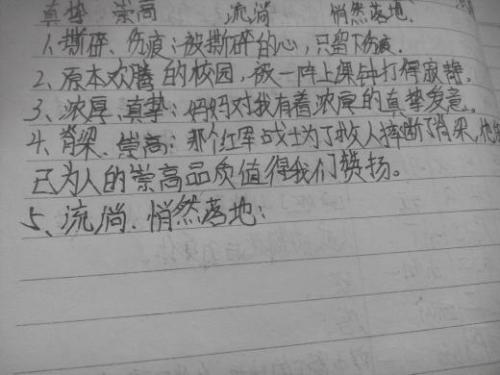 真挚 崇高 流淌 悄然落地
1、撕碎、伤痕:被撕碎的心,只留下伤痕.
2、原本欢腾的校园,被一阵上课钟打得寂静.
3、浓厚、真挚:妈妈对我有着浓厚的真挚爱意.
4、脊梁、崇高:那个红军战士为了救人摔断了脊梁,他
己为人的崇高品质值得我们赞扬。
5、流淌.悄然落地: